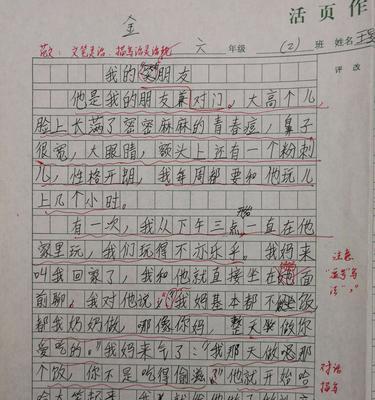 活页作
金
六 年级 (2) 班 姓名 王
评改
我的朋友
他是我的朋友兼对门。大高个儿,
脸上长满了密密麻麻的青春痘,鼻子
很宽,大眼睛,额头上还有一个粉刺
儿,性格开朗,我每周都要和他玩儿
上几个小时。
开始
有一次,我从下午三点一直在他
家里玩,我们玩得不亦乐乎。我妈来
叫我回家了,我和他就直接坐在面
前聊。我对他说:“我妈基本都不做饭
都我奶奶做,哪像你妈,整天做你
爱吃的。”我妈来气了:“我那天做那
个饭,你不是吃得偷滋?”他就开始哈
注意
对话
描写